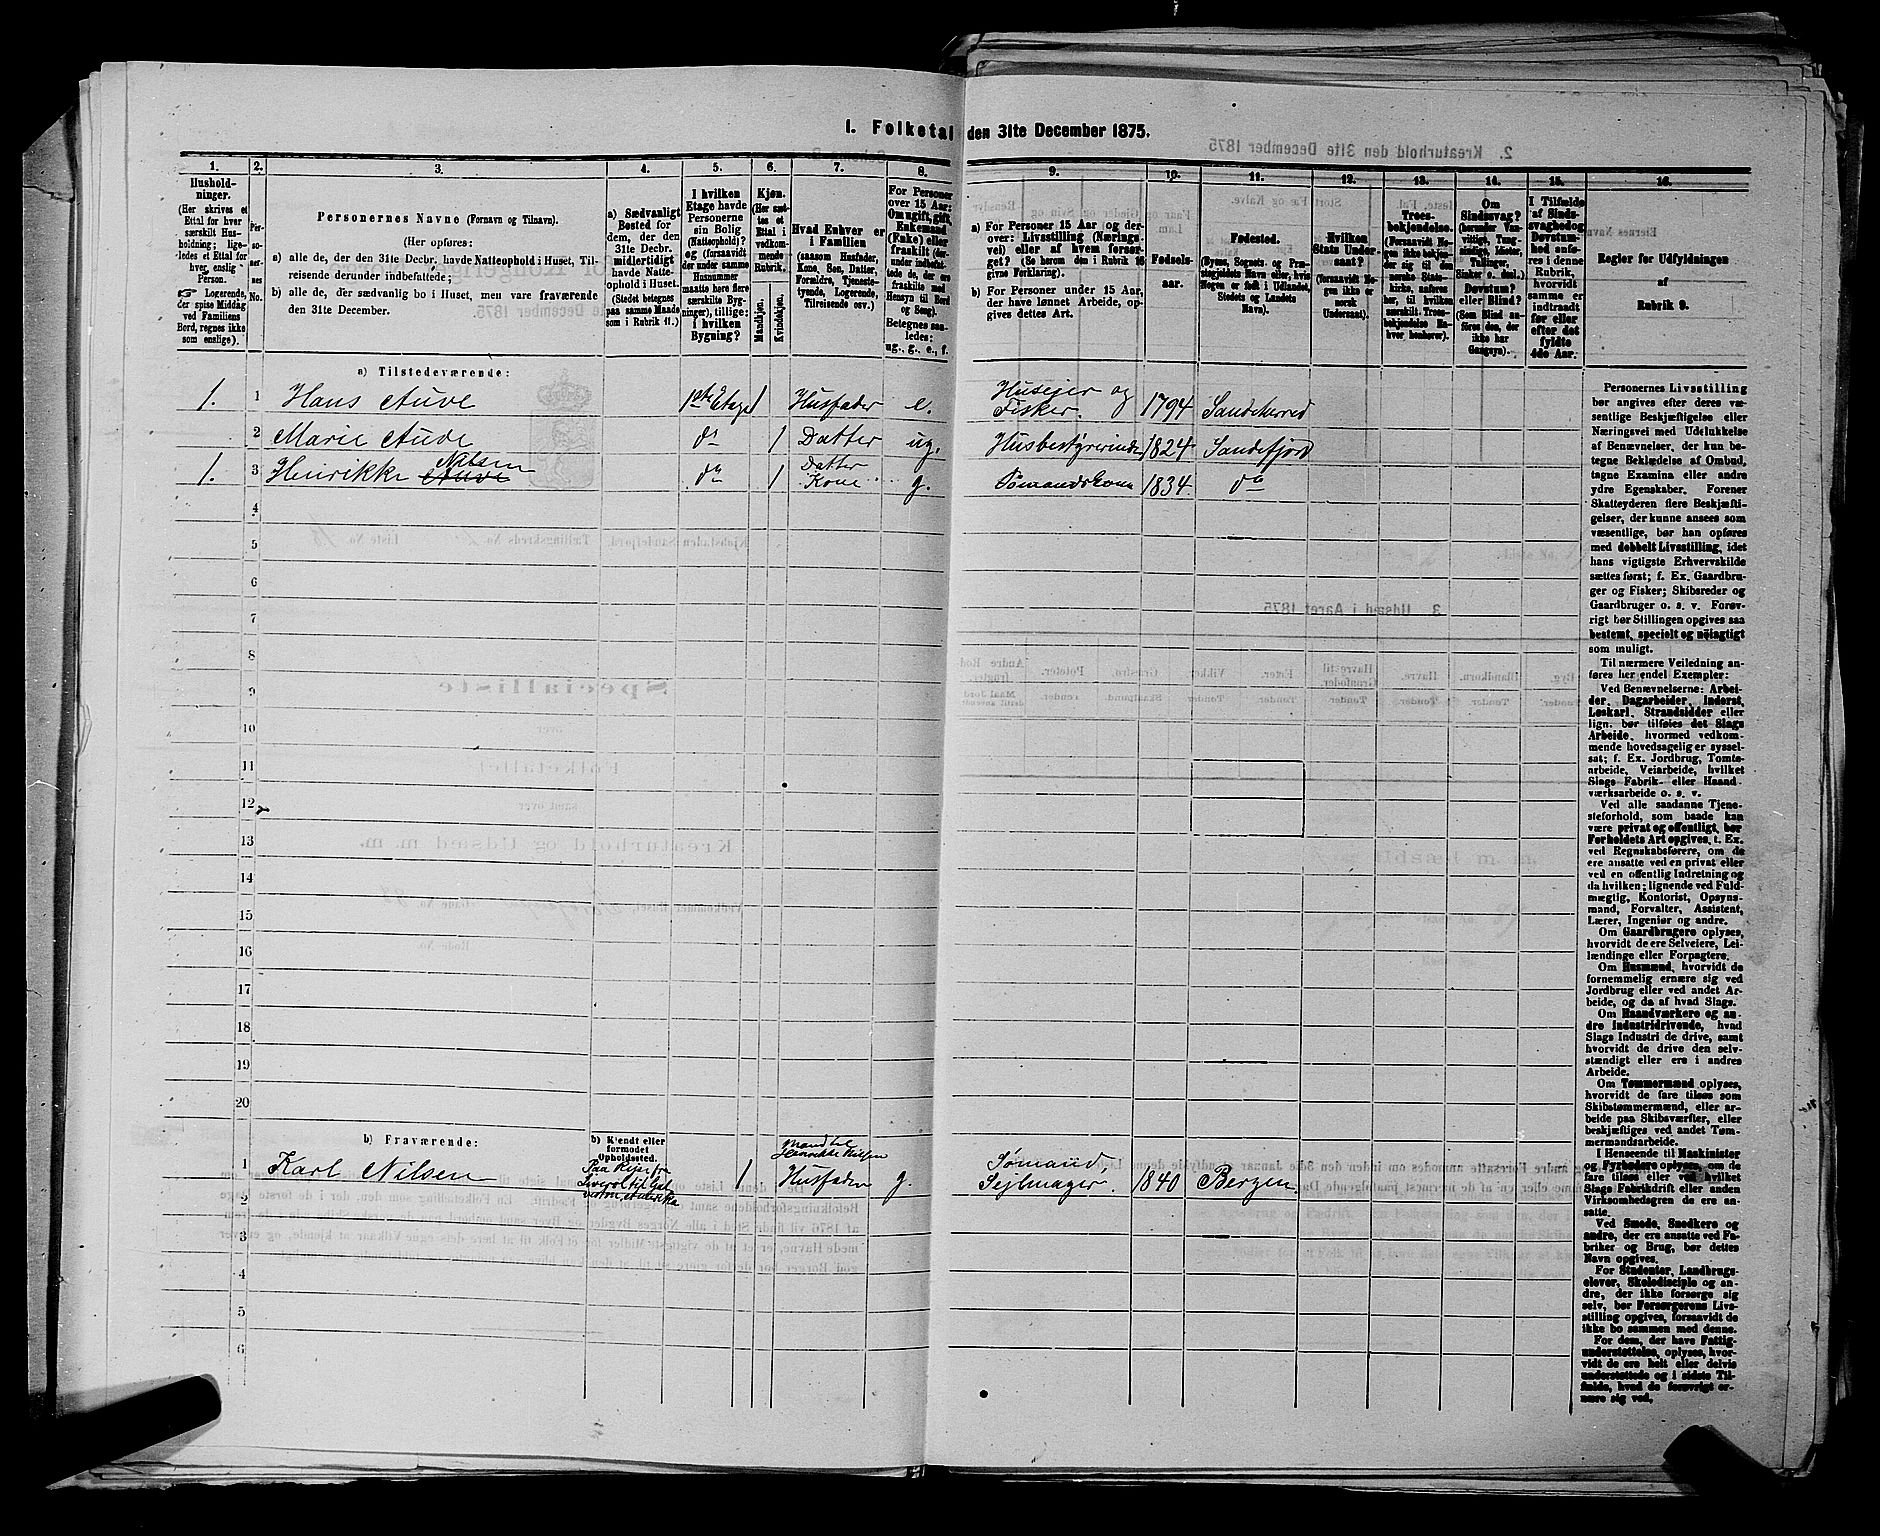 1. Folketal den 31te December 1875.
1.
Hushold-
ninger.
(Her skrives et
Ettal for hver
særskilt Hus-
holdning; lige-
ledes et Ettal
for hver
enslig
Person.
☞ Logerende,
der spise Middag
ved Familiens
Bord, regnes ikke
som enslige).
2.
Per-
so-
ner-
nes
No.
3.
Personernes Navne (Fornavn og Tilnavn).
(Her opføres:
a) alle de, der den 31te Decbr. havde Natteophold i Huset, Til-
reisende derunder indbefattede;
b) alle de, der sædvanlig bo i Huset, men vare fraværende
den 31te December.
4.
a) Sædvanligt
Bosted for
dem, der den
31te Decbr.
midlertidigt
havde Natte-
ophold i Huset.
(Stedet betegnes
paa samme Maade
som i Rubrik 11.)
5.
I hvilken
Etage havde
Personerne
sin Bolig
(Natteophold)?
og (forsaavidt
der under samme
Husnummer
maatte høre flere
særskilte Byg-
ninger), tillige:
i hvilken
Bygning?
6.
Kjøn.
(Her sæt-
tes et
Ettal i
vedkom-
mende
Rubrik.
Mandkjøn.
Kvindekjøn.
7.
Hvad Enhver er
i Familien
(saasom Husfader,
Kone, Søn, Datter,
Forældre, Tjeneste-
tyende, Logerende,
Tilreisende osv.)
8.
For Personer
over 15 Aar:
Om ugift, gift,
Enkemand
(Enke) eller
fraskilt
Betegnes saa-
ledes:
ug., g., e., f.
9.
a) For Personer 15 Aar og der-
over: Livsstilling (Nærings-
vei) eller af hvem forsør-
get? (Se herom den i Rubrik 16
givne Forklaring).
b) For Personer under 15 Aar,
der have lønnet Arbeide, op-
gives dettes Art.
10.
Fødsels-
aar.
11.
Fødested.
(Byens, Sognets og Præ-
stegjeldets Navn eller, hvis
Nogen er født i Udlandet,
Stedets og Landets
Navn).
12.
Hvilken
Stats Under-
saat?
(forsaavidt No-
gen ikke er
norsk
Undersaat).
13.
Troes-
bekjendelse.
(Forsaavidt No-
gen ikke beken-
der sig til den
norske Stats-
kirke, anføres
her, til hvilken
særskilt Troes-
bekjendelse En-
hver henhører).
14.
Om
Sindssvag?
(herunder Van-
vittigt, Tung-
sindigt, Idioter,
Tullinger,
Sinker o. desl.)
Døvstum?
eller Blind?
(Som Blind an-
føres den, der
ikke har
Gangsyn).
15.
I Tilfælde
af Sinds-
svaghed og
Døvstum-
hed anfø-
res i denne
Rubrik,
hvorvidt
samme er
indtraadt
før eller
efter det
fyldte
4de Aar.
16.
Regler for Udfyldningen
af
Rubrik 9.
a) Tilstedeværende:
1. 1 Hans Auve 1ste Etage 1 Husfader e. Huseier og Fisker. 1794 Sandeherred
2 Marie Auve do 1 Datter ug. Husbestyrerinde 1824 Sandefjord
1. 3 Henrikke Auve Nilsen do 1 Datter Kone g. Sømandskone 1834 do
4
5
6
7
8
9
10
11
12
13
14
15
16
17
18
19
20
b) Fraværende:
b) Kjendt eller
formodet
Opholdssted.
1 Karl Nilsen Paa Rejse fra 1 Mand til Henrikke Nilsen Husfader g. Sømand Sejlmager. 1840 Bergen.
2
3
4
5
6
Personernes Livsstilling
bør angives efter deres væ-
sentlige Beskjæftigelse eller
Næringsvei med Udelukkelse
af Benævnelser, der kun be-
tegne Beklædelse af Ombud,
tagne Examina eller andre
ydre Egenskaber. Forener
Skatteyderen flere Beskjæfti-
gelser, der kunne ansees som
væsentlige, bør han opføres
med dobbelt Livsstilling, idet
hans vigtigste Erhvervskilde
sættes først; f. Ex. Gaardbru-
ger og Fisker; Skibsreder og
Gaardbruger o. s. v. Forøv-
rigt bør Stillingen opgives saa
bestemt, specielt og nøiagtigt
som muligt.
Til nærmere Veiledning an-
føres her endel Exempler:
Ved Benævnelserne: Arbei-
der, Dagarbeider, Inderst,
Løskarl, Strandsidder eller
lign. bør tilføies det Slags
Arbeide, hvormed vedkom-
mende hovedsagelig er syssel-
sat; f. Ex. Jordbrug, Tomte-
arbeide, Veiarbeide, hvilket
Slags Fabrik- eller Haand-
værksarbeide o. s. v.
Ved alle saadanne Tjene-
steforhold, som baade kan
være privat og offentligt, bør
Forholdets Art opgives, t. Ex.
ved Regnskabsførere, om de
ere ansatte ved en privat eller
ved en offentlig Indretning og
da hvilken; lignende ved Fuld-
mægtig, Kontorist, Opsyns-
mand, Forvalter, Assistent,
Lærer, Ingeniør og andre.
Om Gaardbrugere oplyses,
hvorvidt de ere Selveiere, Lei-
lændinge eller Forpagtere.
Om Husmænd, hvorvidt de
fornemmelig ernære sig ved
Jordbrug eller ved andet Ar-
beide, og da af hvad Slags.
Om Haandværkere og an-
dre Industridrivende, hvad
Slags Industri de drive, samt
hvorvidt de drive den selv-
stændigt eller ere i andres
Arbeide.
Om Tømmermænd oplyses,
hvorvidt de fare tilsøs som
Skibstømmermænd, eller ar-
beide paa Skibsværfter, eller
beskjæftiges ved andet Tøm-
mermandsarbeide.
I Henseende til Maskinister
og Fyrbødere oplyses, om de
fare tilsøs eller ved hvilket
Slags Fabrikdrift eller anden
Virksomhedsgren de ere an-
satte.
Ved Smede, Snedkere og
andre, der ere ansatte ved Fa-
briker og Brug, bør dettes
Navn opgives.
For Studenter, Landbrugs-
elever, Skoledisciple og an-
dre, der ikke forsørge sig
selv, bør Forsørgerens Livs-
stilling opgives, forsaavidt de
ikke bo sammen med denne.
For dem, der have Fattig-
understøttelse, oplyses, hvor-
vidt de ere helt eller delvis
understøttede og i sidste Til-
fælde, hvad de forøvrigt er-
nære sig ved.